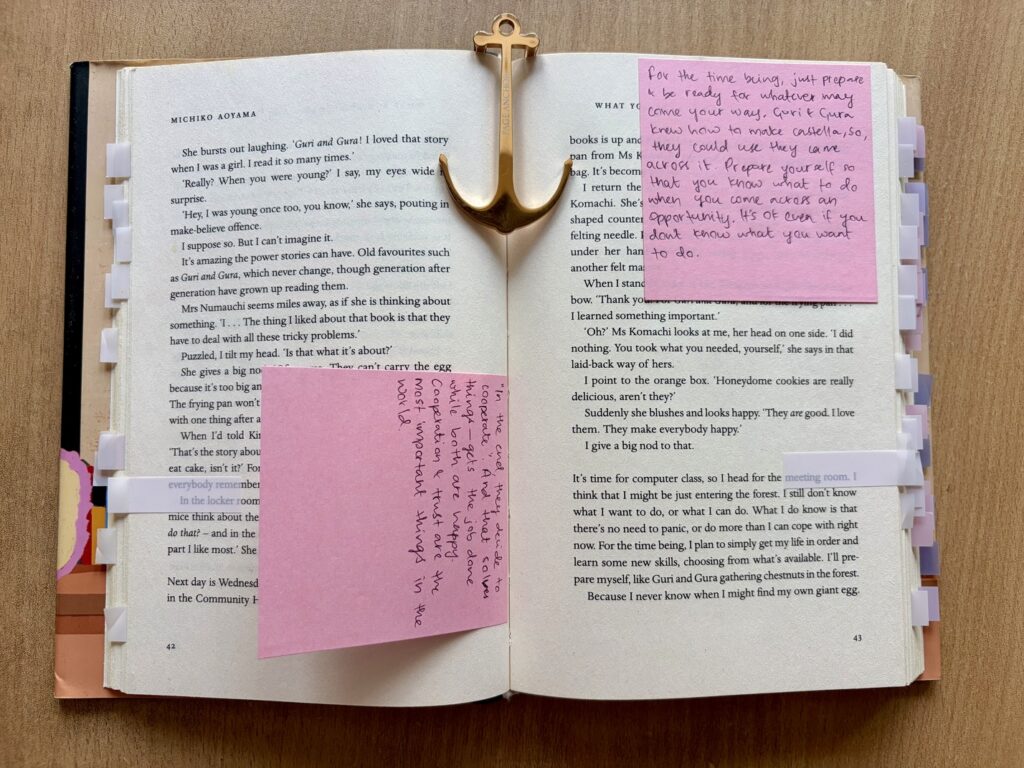 MICHIKO AOYAMA
She bursts out laughing. 'Guri and Gura! I loved that story
when I was a girl. I read it so many times.'
'Really? When you were young?' I say, my eyes wide
surprise.
'Hey, I was young once too, you know,' she says, pouting in
make-believe offence.
I suppose so. But I can't imagine it.
It's amazing the power stories can have. Old favourites such
as Guri and Gura, which never change, though generation after
generation have grown up reading them.
Mrs Numauchi seems miles away, as if she is thinking about
something. 'I . . . The thing I liked about that book is that they
have to deal with all these tricky problems.'
Puzzled, I tilt my head. 'Is that what it's about?'
She gives a big no They can't carry the egg
because it's too big an
The frying pan won't
with one thing after a
When I'd told Kir
'That's the story abou
eat cake, isn't it?' For
everybody remember
In the locker room
mice think about the
do that? – and in the
part I like most.' She
Next day is Wednesd
in the Community H
42
"In the end, they decide to
cooperate". And that solves
things – gets the job done
while both are happy.
Cooperation & trust are the
most important things in the
world
PAGE ANCHOR
WHAT YO
books is up and
pan from Ms K
bag. It's becom
I return the
Komachi. She's
shaped counter
felting needle. I
under her han
another felt ma
When I stand
bow. 'Thank you
I learned something important.'
'Oh?' Ms Komachi looks at me, her head on one side. 'I did
nothing. You took what you needed, yourself,' she says in that
laid-back way of hers.
I point to the orange box. 'Honeydome cookies are really
delicious, aren't they?'
Suddenly she blushes and looks happy. 'They are good. I love
them. They make everybody happy.'
I give a big nod to that.
It's time for computer class, so I head for the meeting room. I
think that I might be just entering the forest. I still don't know
what I want to do, or what I can do. What I do know is that
there's no need to panic, or do more than I can cope with right
now. For the time being, I plan to simply get my life in order and
learn some new skills, choosing from what's available. I'll pre-
pare myself, like Guri and Gura gathering chestnuts in the forest.
Because I never know when I might find my own giant egg.
43
For the time being, just prepare
& be ready for whatever may
come your way. Guri & Gura
knew how to make castella, so,
they could use they came
across it. Prepare yourself so
that you know what to do
when you come across an
opportunity. It's OK even if you
dont know what you want
to do.